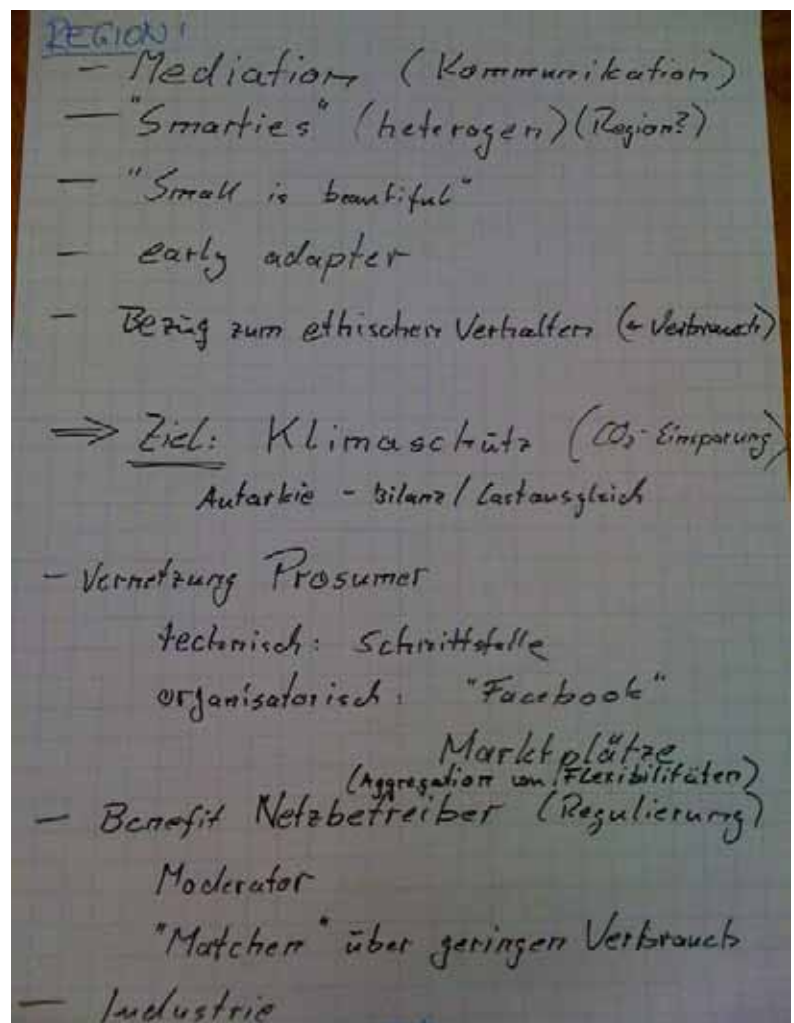 REGION!
- Mediation (Kommunikation)
- "Smarties" (heterogen) (Region?)
- "Small is beautiful"
- early adapter
- Bezug zum ethischen Verhalten (← Verbrauch)
⇒ Ziel: Klimaschutz (CO₂-Einsparung)
Autarkie - Bilanz / Lastausgleich
- Vernetzung Prosumer
technisch: Schnittstelle
organisatorisch: "Facebook"
Marktplätze
(Aggregation von Flexibilitäten)
- Benefit Netzbetreiber (Regulierung)
Moderator
"Matchen" über geringen Verbrauch
- Industrie